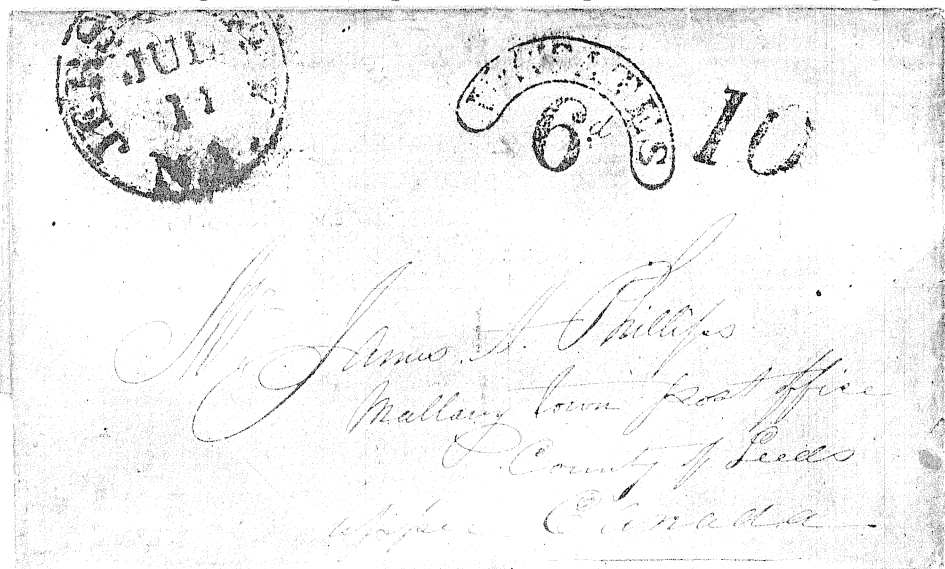 JUL
11
U.STATES
6d
10
Mr James A. Phillips
Mallany town post office
County of Leeds
upper Canada